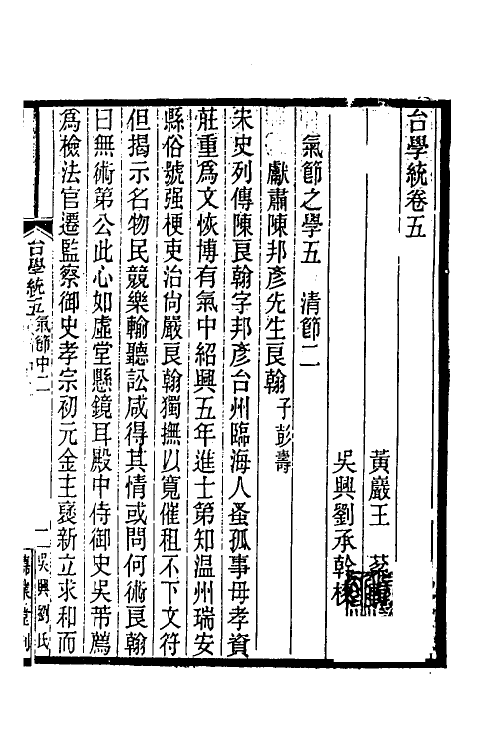 台學統卷五
黃巖王
吳興劉承幹
氣節之學五　清節二
獻肅陳邦彥先生良翰子彭壽
宋史列傳陳良翰字邦彥台州臨海人蚤孤事母孝資
莊重爲文恢博有氣中紹興五年進士第知温州瑞安
縣俗號强梗吏治尙嚴良翰獨撫以寬催租不下文符
但揭示名物民競樂輸聽訟咸得其情或問何術良翰
曰無術第公此心如虛堂懸鏡耳殿中侍御史吳芾薦
爲檢法官遷監察御史孝宗初元金主襃新立求和而
台學統五氣節中二
一
吳興劉氏
嘉業堂刊